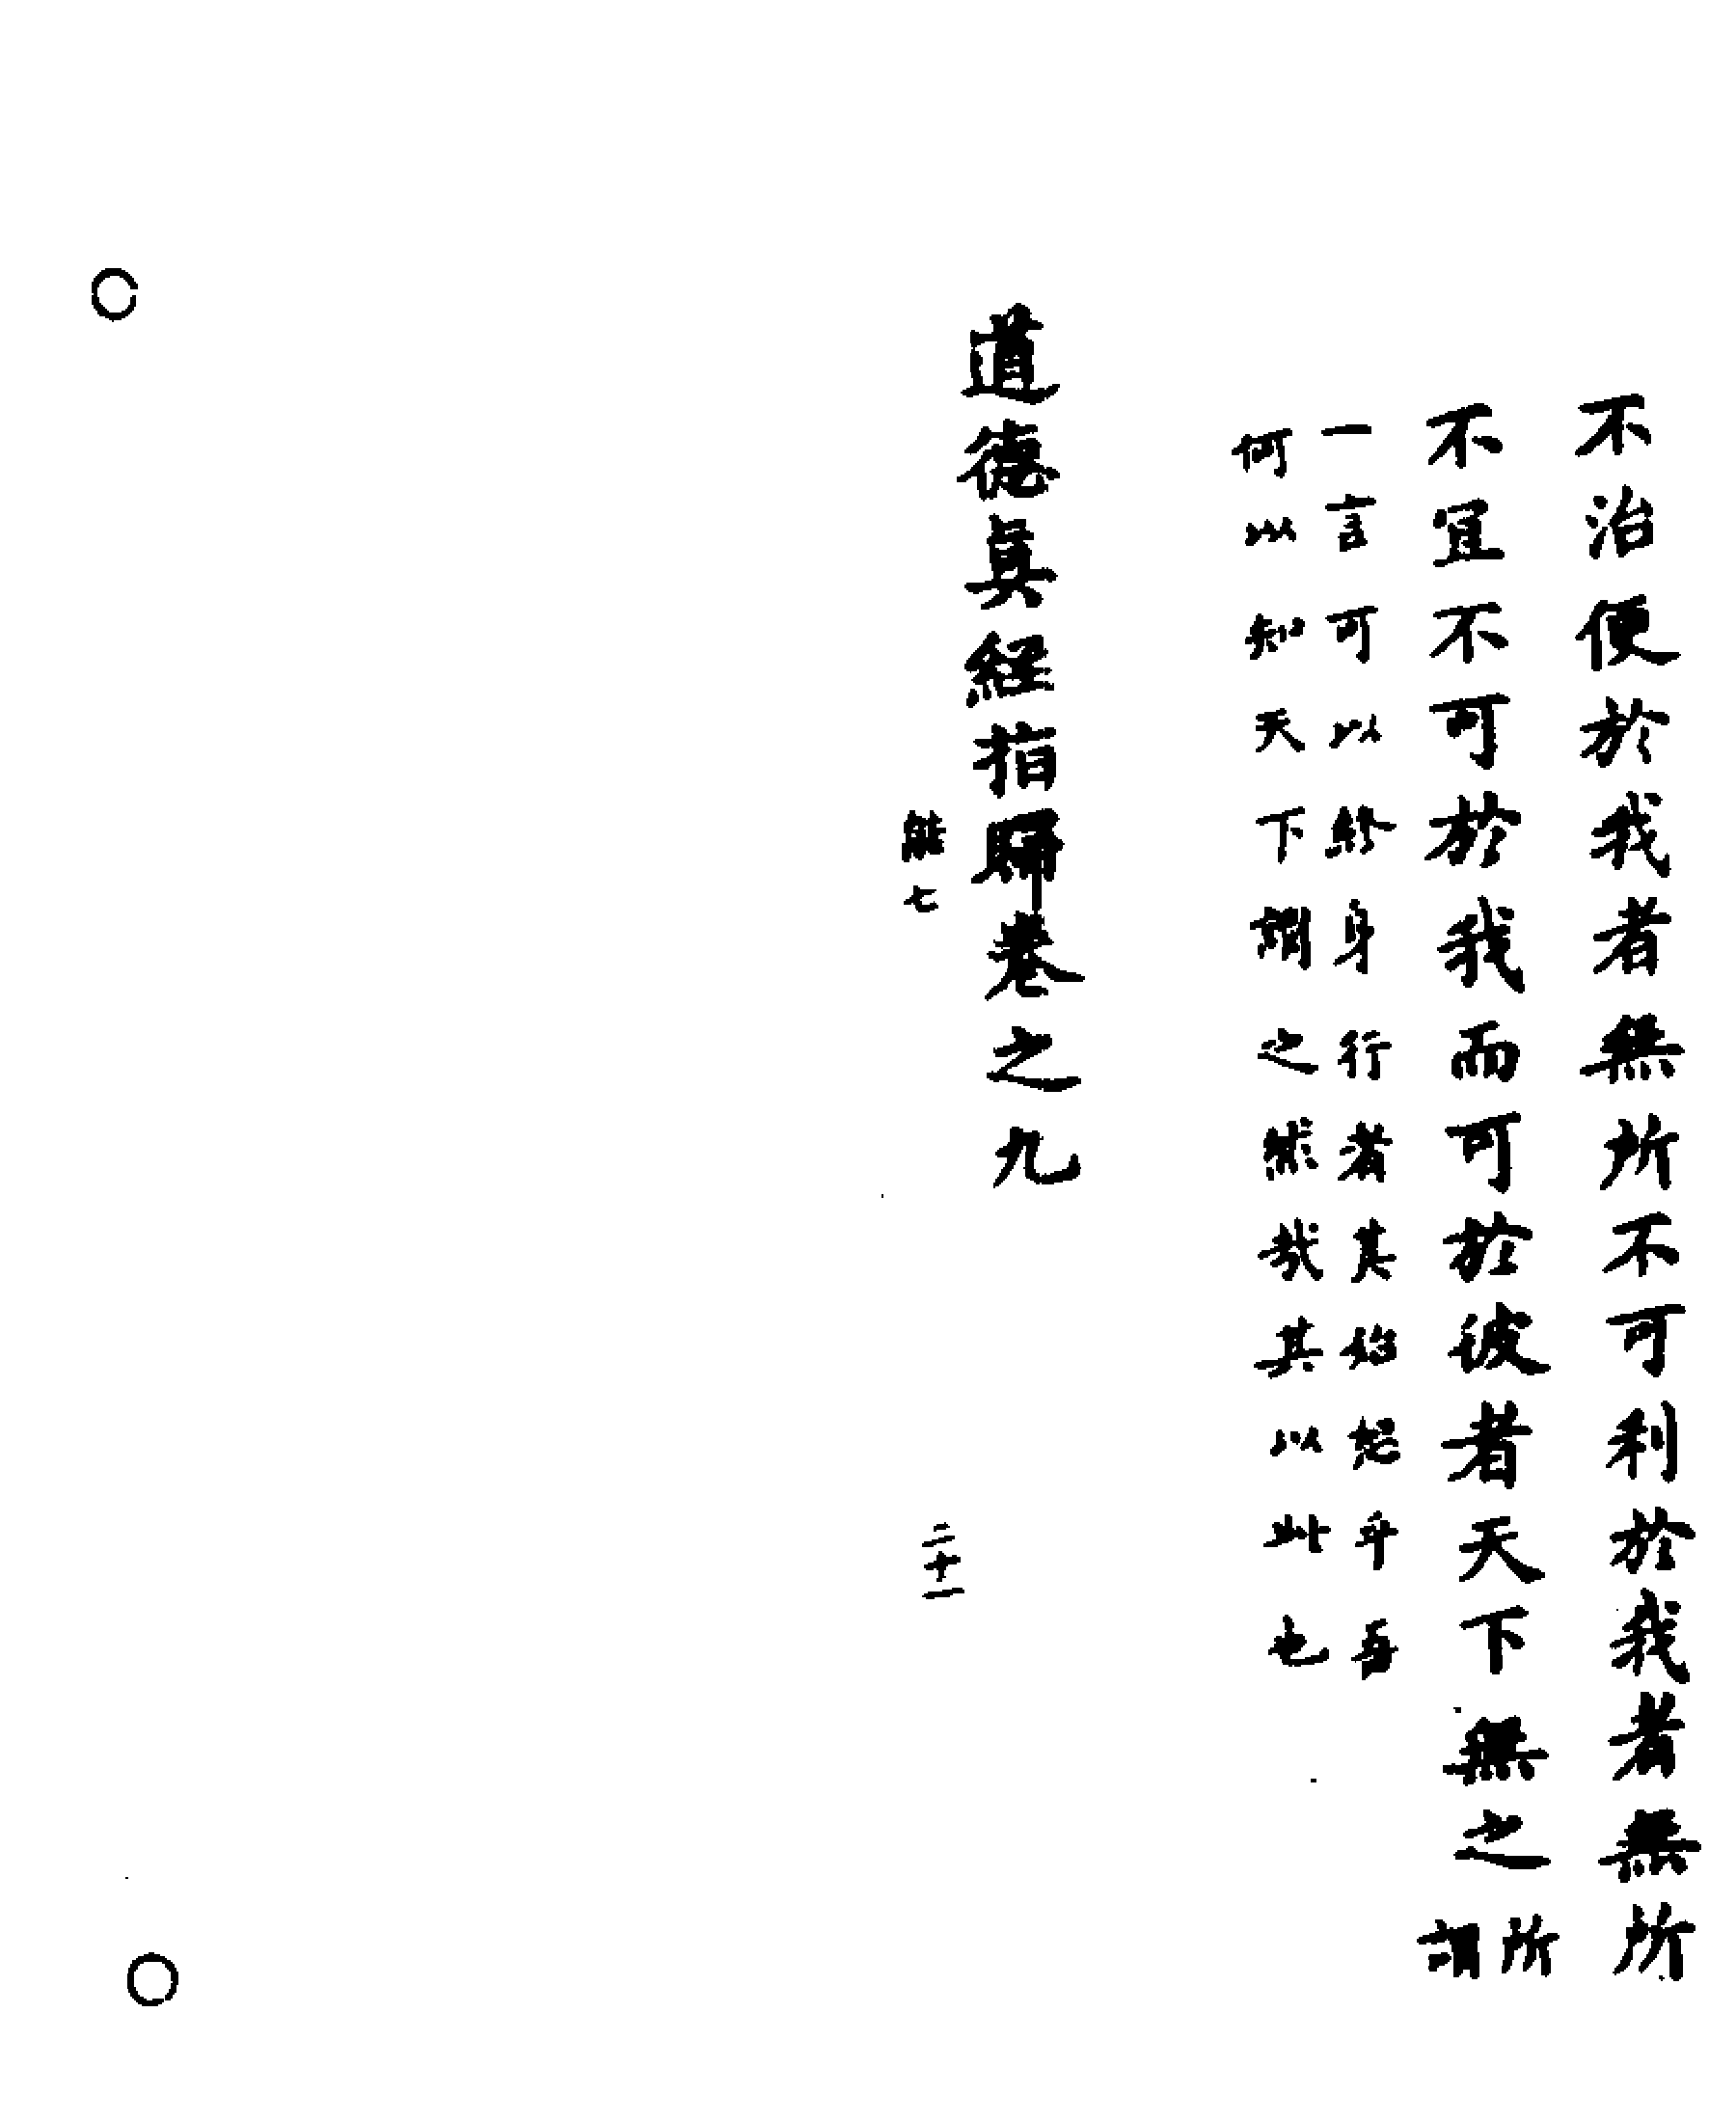 不治便於我者無所不可利於我者無所
不宜不可於我而可於彼者天下無之所謂
一言可以終身行者其殆恕乎吾
何以知天下謂之然哉其以此也
道德真經指歸卷之九
能七
二十一